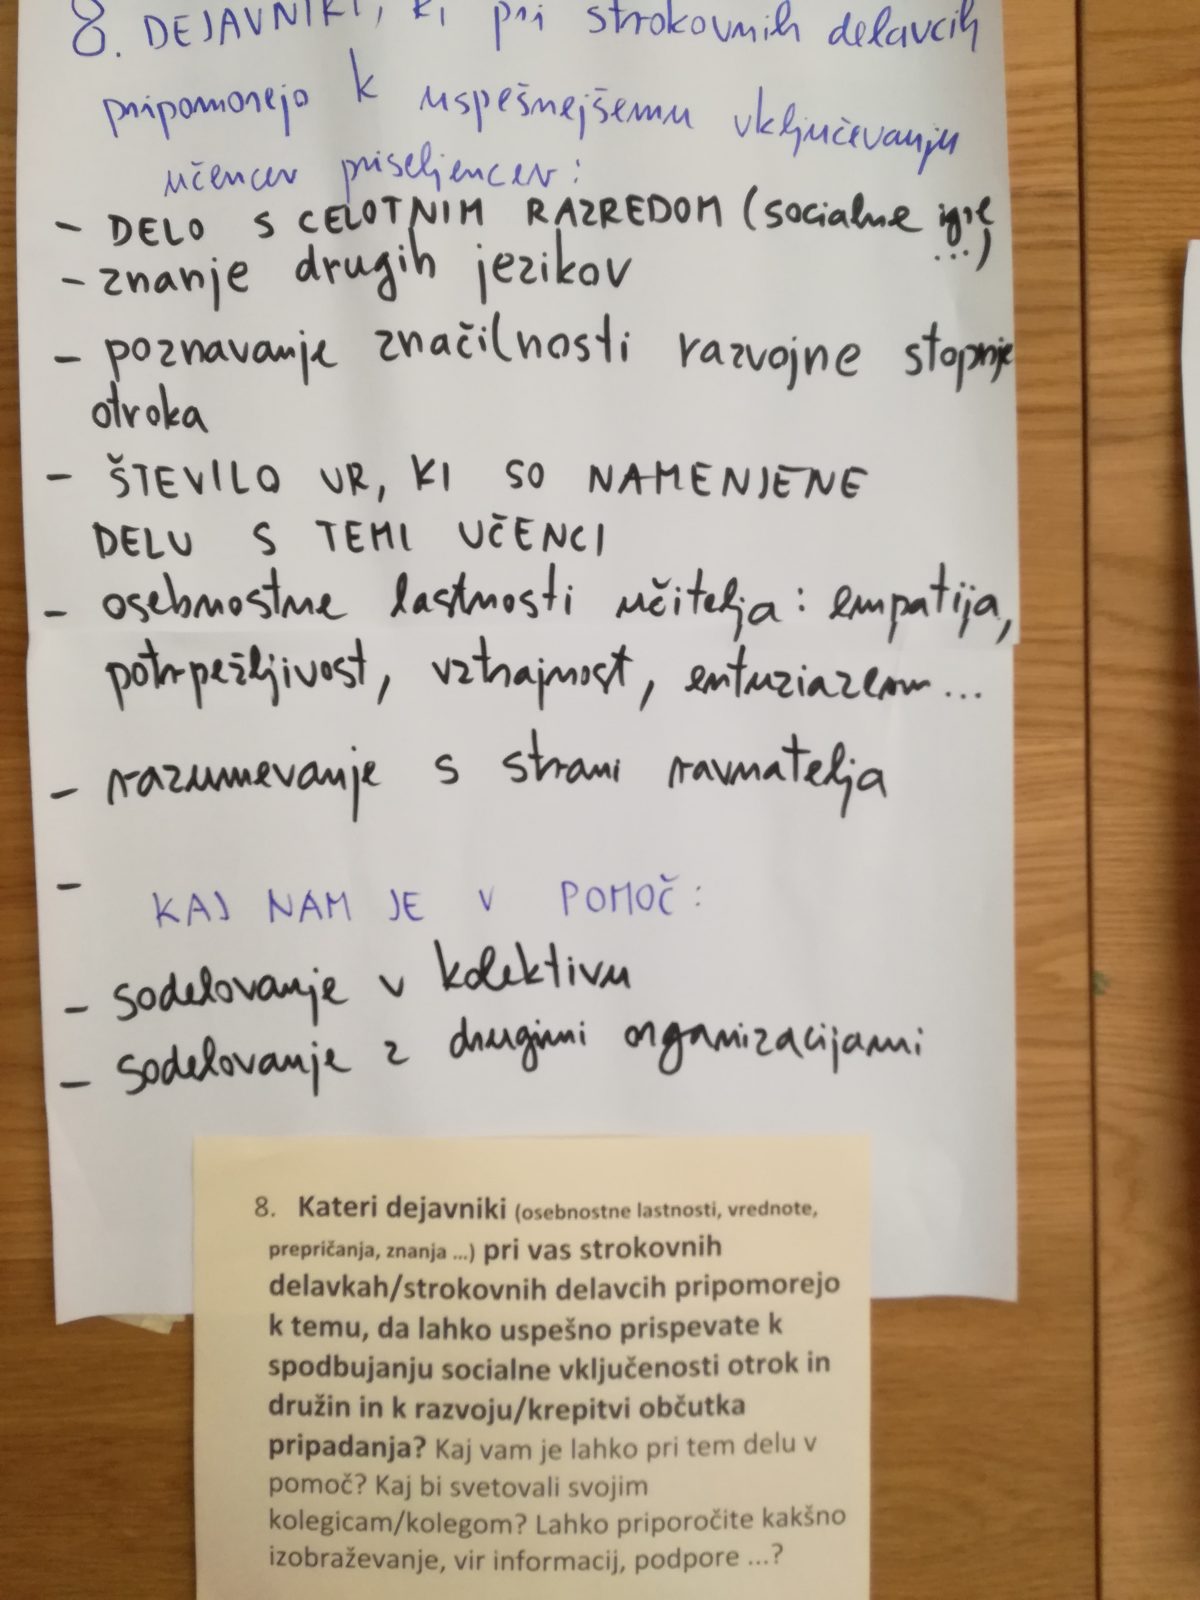 8. DEJAVNIKI, ki pri strokovnih delavcih
pripomorejo k uspešnejšemu vključevanju
učencev priseljencev:
- DELO S CELOTNIM RAZREDOM (socialne igre
...)
- znanje drugih jezikov
- poznavanje značilnosti razvojne stopnje
otroka
- ŠTEVILO UR, KI SO NAMENJENE
DELU S TEMI UČENCI
- osebnostne lastnosti učitelja: empatija,
potrpežljivost, vztrajnost, entuziazem...
- razumevanje s strani ravnatelja
-
KAJ NAM JE V POMOČ:
- sodelovanje v kolektivu
- sodelovanje z drugimi organizacijami
8. Kateri dejavniki (osebnostne lastnosti, vrednote,
prepričanja, znanja ...) pri vas strokovnih
delavkah/strokovnih delavcih pripomorejo
k temu, da lahko uspešno prispevate k
spodbujanju socialne vključenosti otrok in
družin in k razvoju/krepitvi občutka
pripadanja? Kaj vam je lahko pri tem delu v
pomoč? Kaj bi svetovali svojim
kolegicam/kolegom? Lahko priporočite kakšno
izobraževanje, vir informacij, podpore ...?